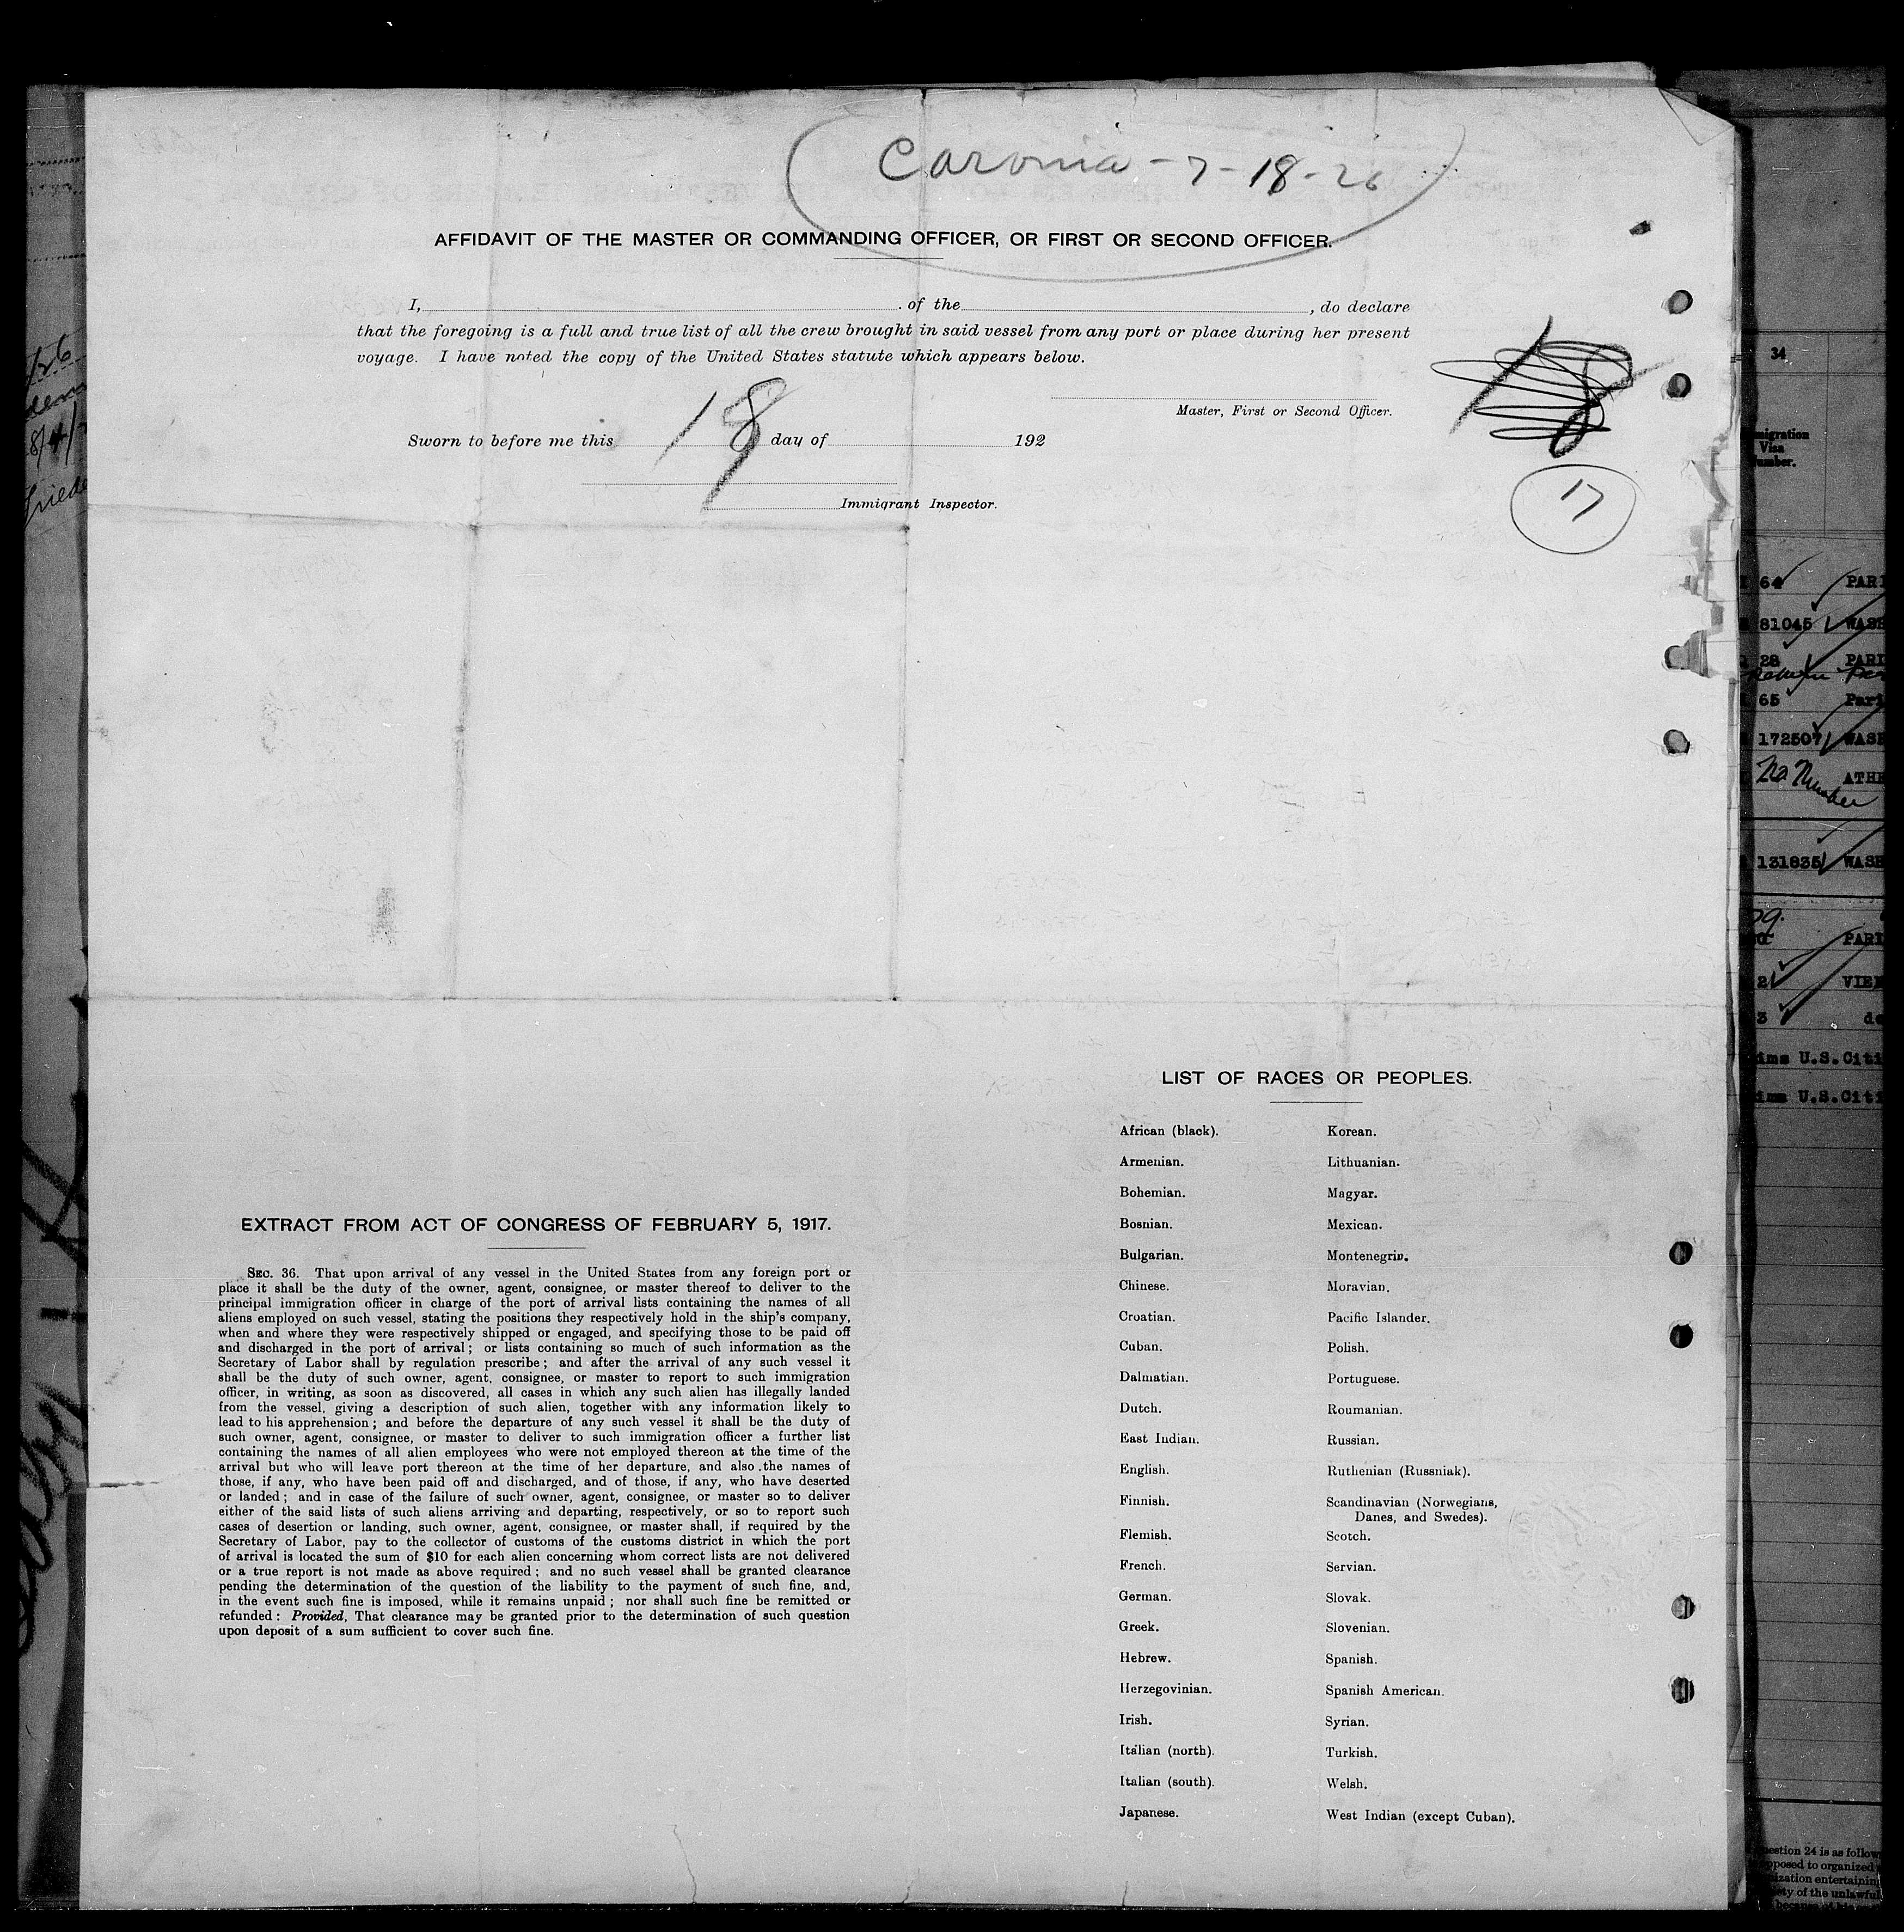 Caronia - 7-18-26
AFFIDAVIT OF THE MASTER OR COMMANDING OFFICER, OR FIRST OR SECOND OFFICER.
I, of the , do declare
that the foregoing is a full and true list of all the crew brought in said vessel from any port or place during her present
voyage. I have noted the copy of the United States statute which appears below.
18
Master, First or Second Officer.
Sworn to before me this 18 day of 192
17
Immigrant Inspector.
LIST OF RACES OR PEOPLES.
African (black).
Armenian.
Bohemian.
Bosnian.
Bulgarian.
Chinese.
Croatian.
Cuban.
Dalmatian.
Dutch.
East Indian.
English.
Finnish.
Flemish.
French.
German.
Greek.
Hebrew.
Herzegovinian.
Irish.
Italian (north).
Italian (south).
Japanese.
Korean.
Lithuanian.
Magyar.
Mexican.
Montenegrin.
Moravian.
Pacific Islander.
Polish.
Portuguese.
Roumanian.
Russian.
Ruthenian (Russniak).
Scandinavian (Norwegians,
Danes, and Swedes).
Scotch.
Servian.
Slovak.
Slovenian.
Spanish.
Spanish American.
Syrian.
Turkish.
Welsh.
West Indian (except Cuban).
EXTRACT FROM ACT OF CONGRESS OF FEBRUARY 5, 1917.
SEC. 36. That upon arrival of any vessel in the United States from any foreign port or
place it shall be the duty of the owner, agent, consignee, or master thereof to deliver to the
principal immigration officer in charge of the port of arrival lists containing the names of all
aliens employed on such vessel, stating the positions they respectively hold in the ship's company,
when and where they were respectively shipped or engaged, and specifying those to be paid off
and discharged in the port of arrival; or lists containing so much of such information as the
Secretary of Labor shall by regulation prescribe; and after the arrival of any such vessel it
shall be the duty of such owner, agent, consignee, or master to report to such immigration
officer, in writing, as soon as discovered, all cases in which any such alien has illegally landed
from the vessel, giving a description of such alien, together with any information likely to
lead to his apprehension; and before the departure of any such vessel it shall be the duty of
such owner, agent, consignee, or master to deliver to such immigration officer a further list
containing the names of all alien employees who were not employed thereon at the time of the
arrival but who will leave port thereon at the time of her departure, and also the names of
those, if any, who have been paid off and discharged, and of those, if any, who have deserted
or landed; and in case of the failure of such owner, agent, consignee, or master so to deliver
either of the said lists of such aliens arriving and departing, respectively, or so to report such
cases of desertion or landing, such owner, agent, consignee, or master shall, if required by the
Secretary of Labor, pay to the collector of customs of the customs district in which the port
of arrival is located the sum of $10 for each alien concerning whom correct lists are not delivered
or a true report is not made as above required; and no such vessel shall be granted clearance
pending the determination of the question of the liability to the payment of such fine, and,
in the event such fine is imposed, while it remains unpaid; nor shall such fine be remitted or
refunded: Provided, That clearance may be granted prior to the determination of such question
upon deposit of a sum sufficient to cover such fine.
34
Visa
64 PARI
81045 WASH
28 PARI
65 Pari
172507 WASH
No Number ATHE
131835 WASH
PARI
2 VIEN
3 do
U.S.Citi
U.S.Citi
24 is as follow
to organized
entertaining
of the unlawful